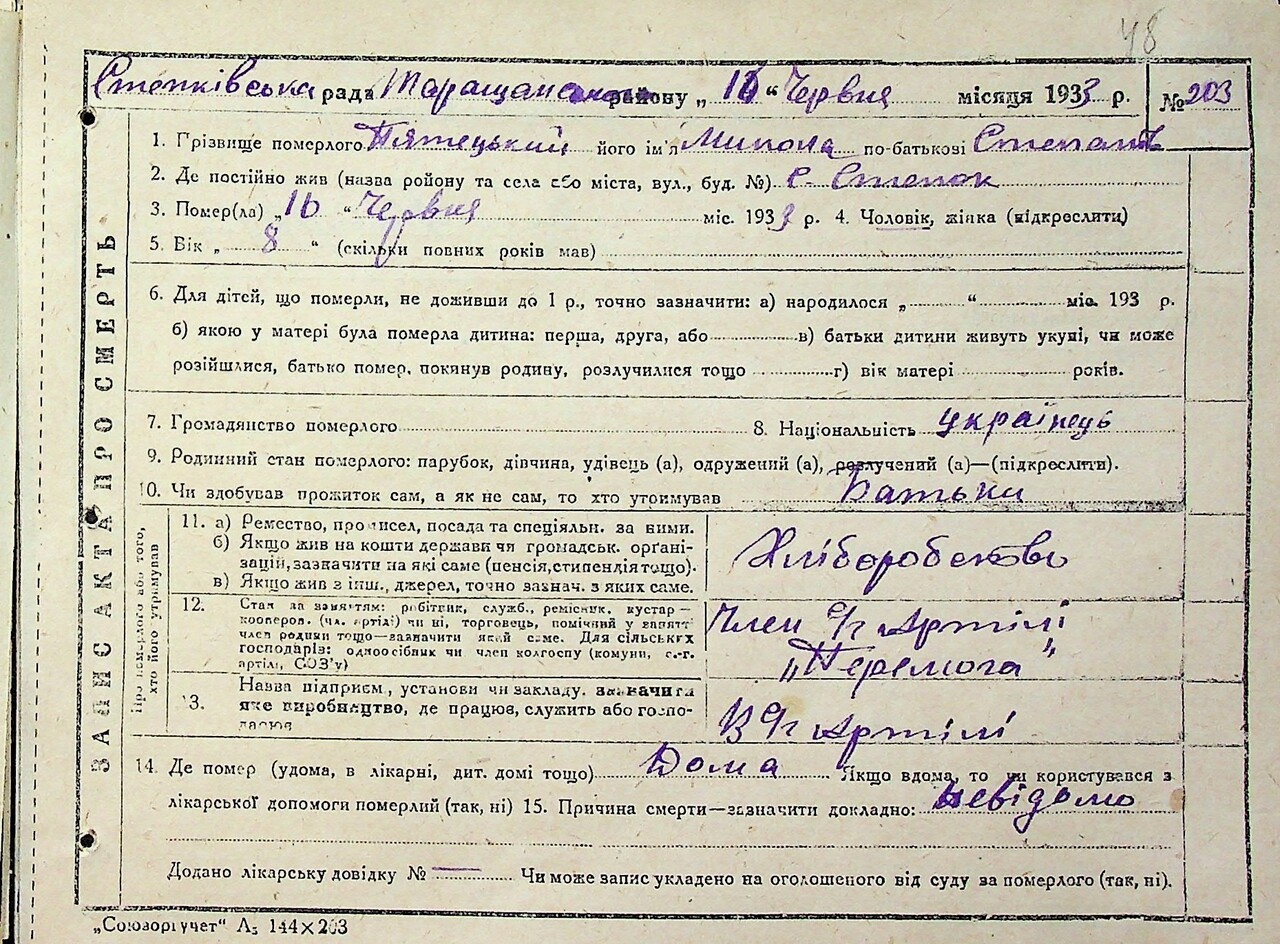 48
Степківська рада Таращанського району „ 16 “ Червня місяця 1933 р. № 203
ЗАПИС АКТА ПРО СМЕРТЬ
1. Грізвище померлого Пятецький його ім'я Микола по-батькові Степанів
2. Де постійно жив (назва ройону та села або міста, вул., буд. №) С. Степок
3. Помер(ла) „ 16 “ Червня міс. 1933 р. 4. Чоловік, жінка (підкреслити)
5. Вік „ 8 “ (скільки повних років мав)
6. Для дітей, що померли, не доживши до 1 р., точно зазначити: а) народилося „ “ міс. 193 р.
б) якою у матері була померла дитина: перша, друга, або в) батьки дитини живуть укупі, чи може
розійшлися, батько помер, покинув родину, розлучилися тощо г) вік матері років.
7. Громадянство померлого 8. Національність українець
9. Родинний стан померлого: парубок, дівчина, удівець (а), одружений (а), розлучений (а)—(підкреслити).
10. Чи здобував прожиток сам, а як не сам, то хто утримував Батьки
Про померлого або того, хто його утримував
11. а) Ремество, промисел, посада та спеціяльн. за ними.
б) Якщо жив на кошти держави чи громадськ. орґані-
зацій, зазначити на які саме (пенсія, стипендія тощо).
в) Якщо жив з інш., джерел, точно зазнач. з яких саме.
Хліборобство
12. Стан за заняттям: робітник, служб., ремісник, кустар—
кооперов. (чл. артілі) чи ні, торговець, помічний у занятт
член родини тощо—зазначити який саме. Для сільських
господарів: одноосібник чи член колгоспу (комуни, с.-г.
артілі, СОЗ'у)
Член С/г Артілі
„Перемога“
13. Назва підприєм., установи чи закладу. зазначити
яке виробництво, де працює, служить або госпо-
дарює
В С/г Артілі
14. Де помер (удома, в лікарні, дит. домі тощо) Дома Якщо вдома, то чи користувався з
лікарської допомоги померлий (так, ні) 15. Причина смерти—зазначити докладно: невідомо
Додано лікарську довідку № — Чи може запис укладено на оголошеного від суду за померлого (так, ні).
„Союзоргучет“ А5 144×203